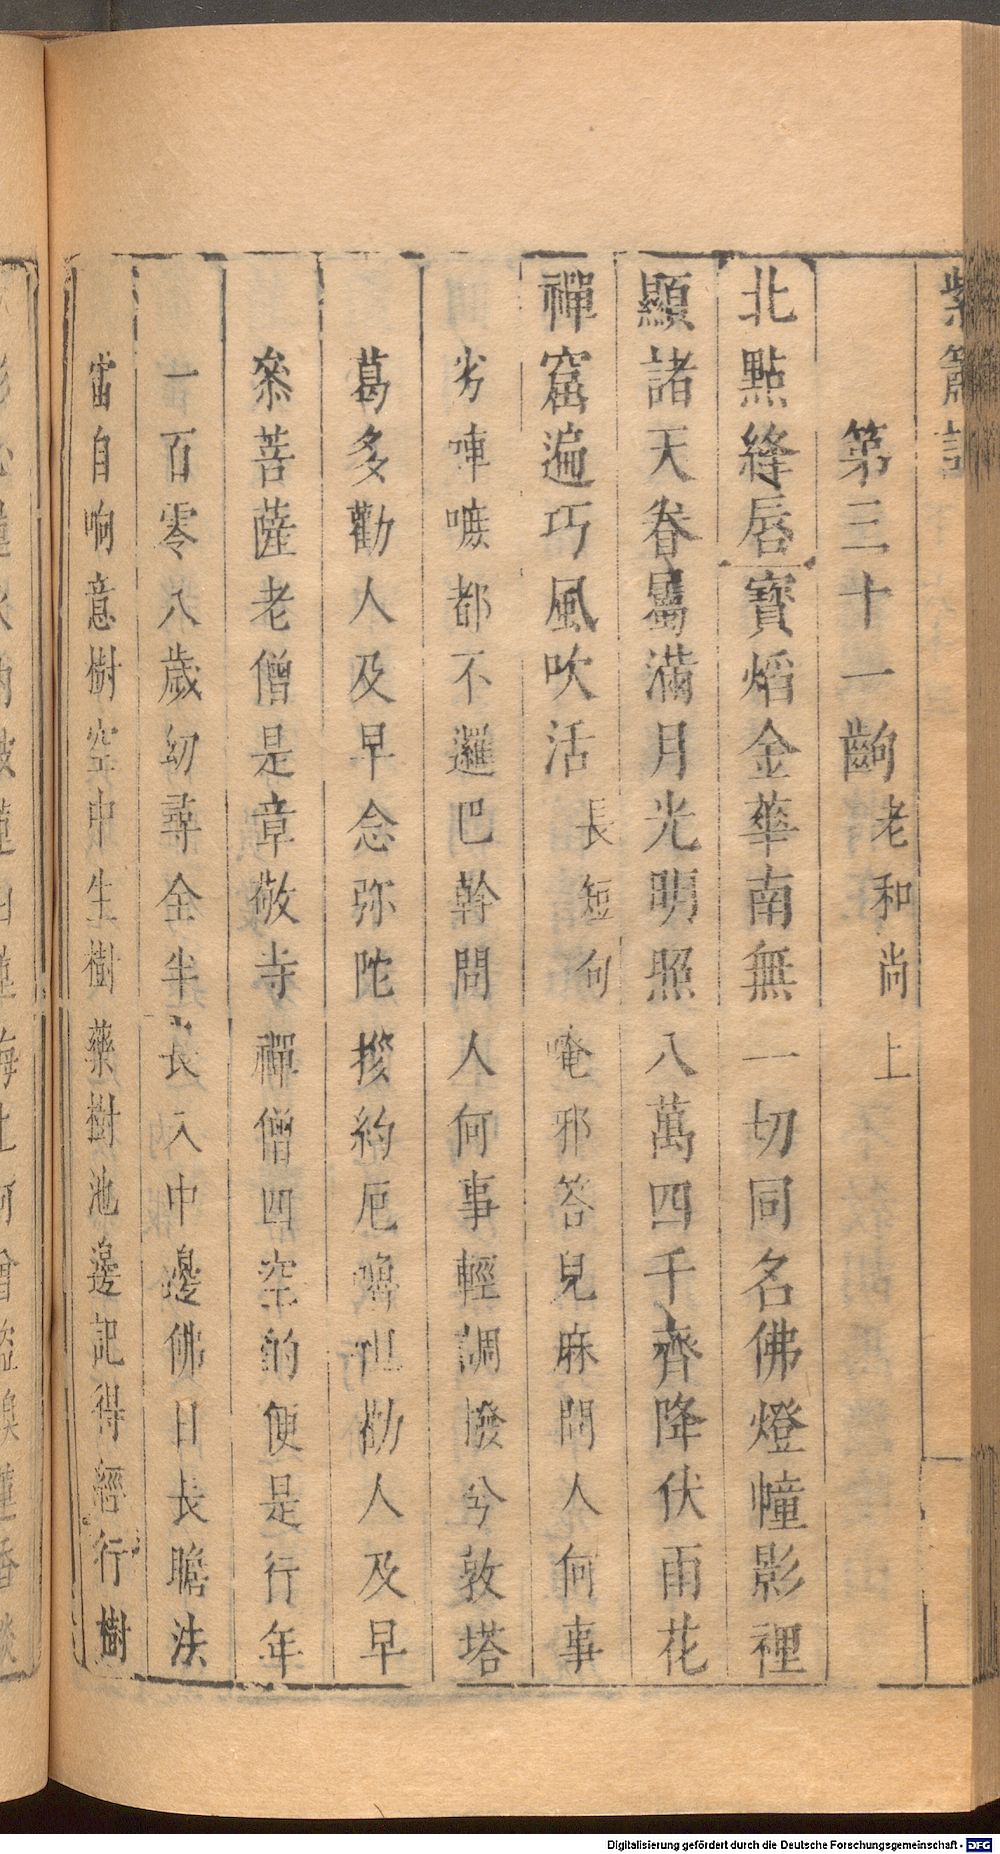 紫簫記
第三十一齣 老和尚上
北點絳唇 寶熖金華南無一切同名佛燈幢影裡
顯諸天眷屬滿月光明照八萬四千齊降伏雨花
禪窟遍巧風吹活 長短句 唵邪答兒麻問人何事
劣唓嗾都不邏巴幹問人何事輕調撥兮敦塔
葛多勸人及早念弥陀撥約厄嚕 勸人及早
叅菩薩老僧是章敬寺禪僧四空的便是行年
一百零八歲幼尋全半長入中邊佛日長瞻法
雷自响意樹空中生樹藥樹池邊記得經行樹
Digitalisierung gefördert durch die Deutsche Forschungsgemeinschaft - DFG